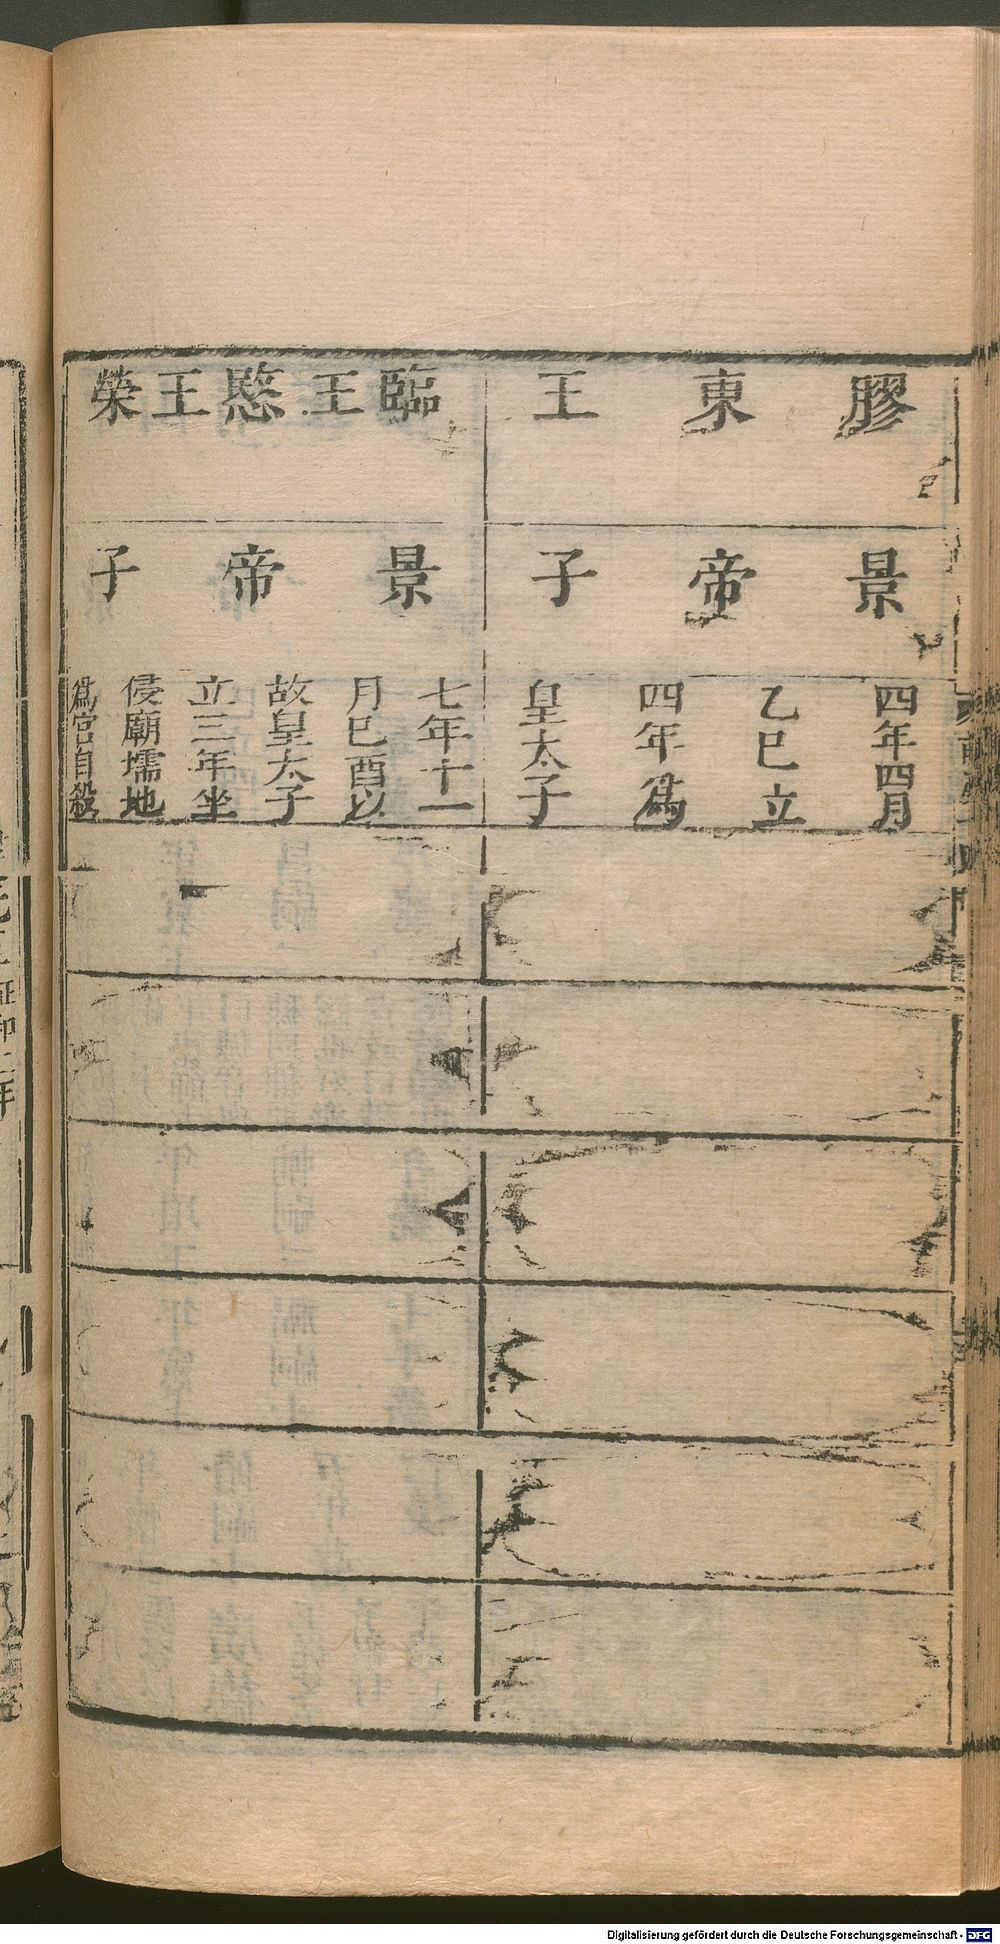 膠東王
景帝子
四年四月
乙巳立
四年爲
皇太子
臨王愍王榮
景帝子
七年十一
月巳酉以
故皇太子
立三年坐
侵廟壖地
爲宮自殺
Digitalisierung gefördert durch die Deutsche Forschungsgemeinschaft - DFG